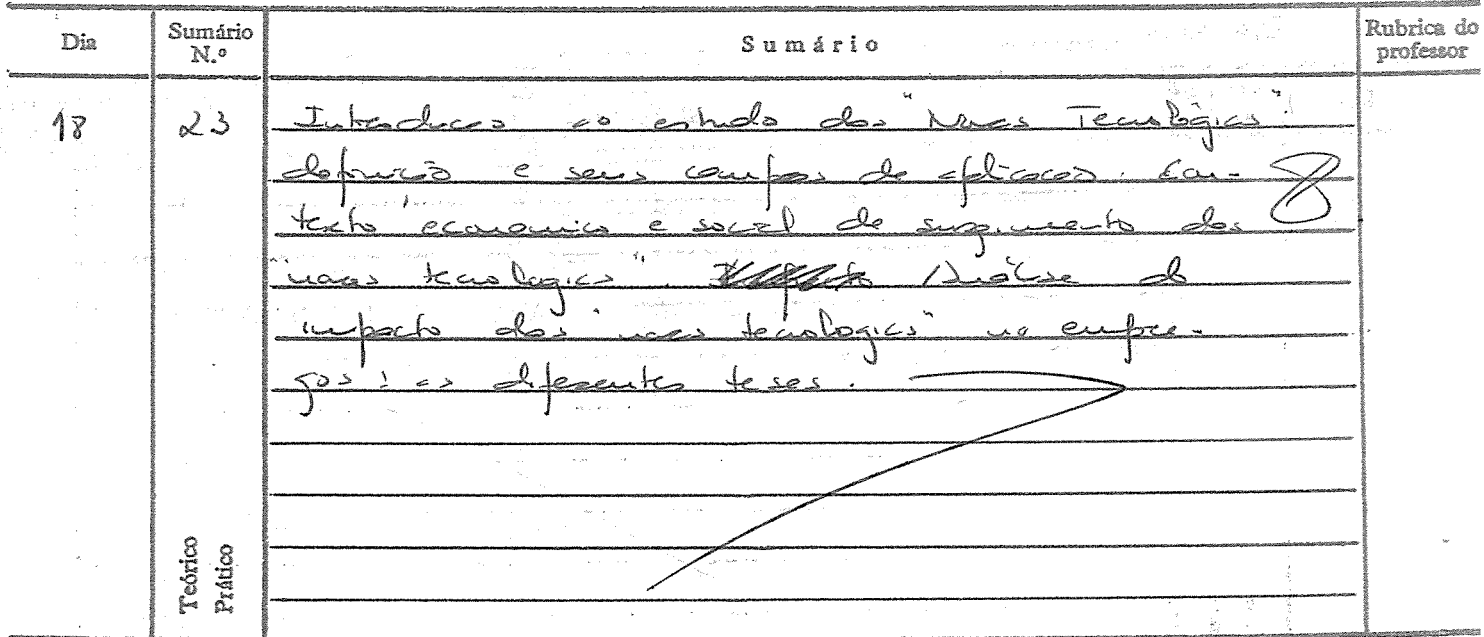 Dia Sumário N.º Sumário Rubrica do professor
18 23 Introducao ao estudo das "Novas Tecnológias":
definição e seus campos de aplicacao. Con-
texto económico e social de surgimento das
"novas tecnologias". Análise do
impacto das "novas tecnologias" no empre-
gos: as diferentes teses.
Teórico
Prático